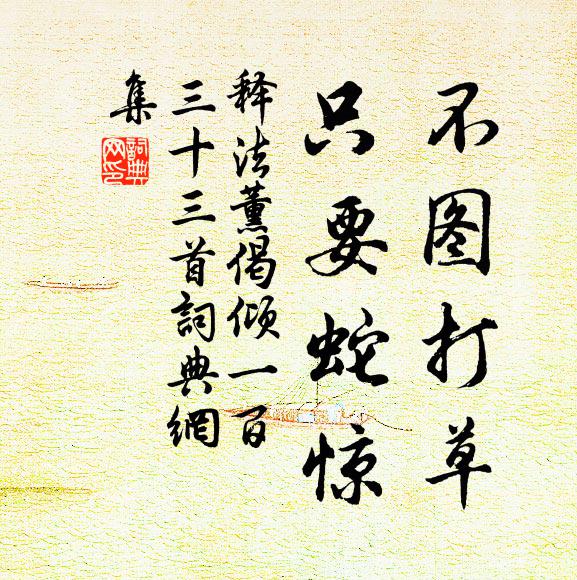 不图打草
只要蛇惊
释法薰偈倾一百
三十三首詞典網
集
詞典網印